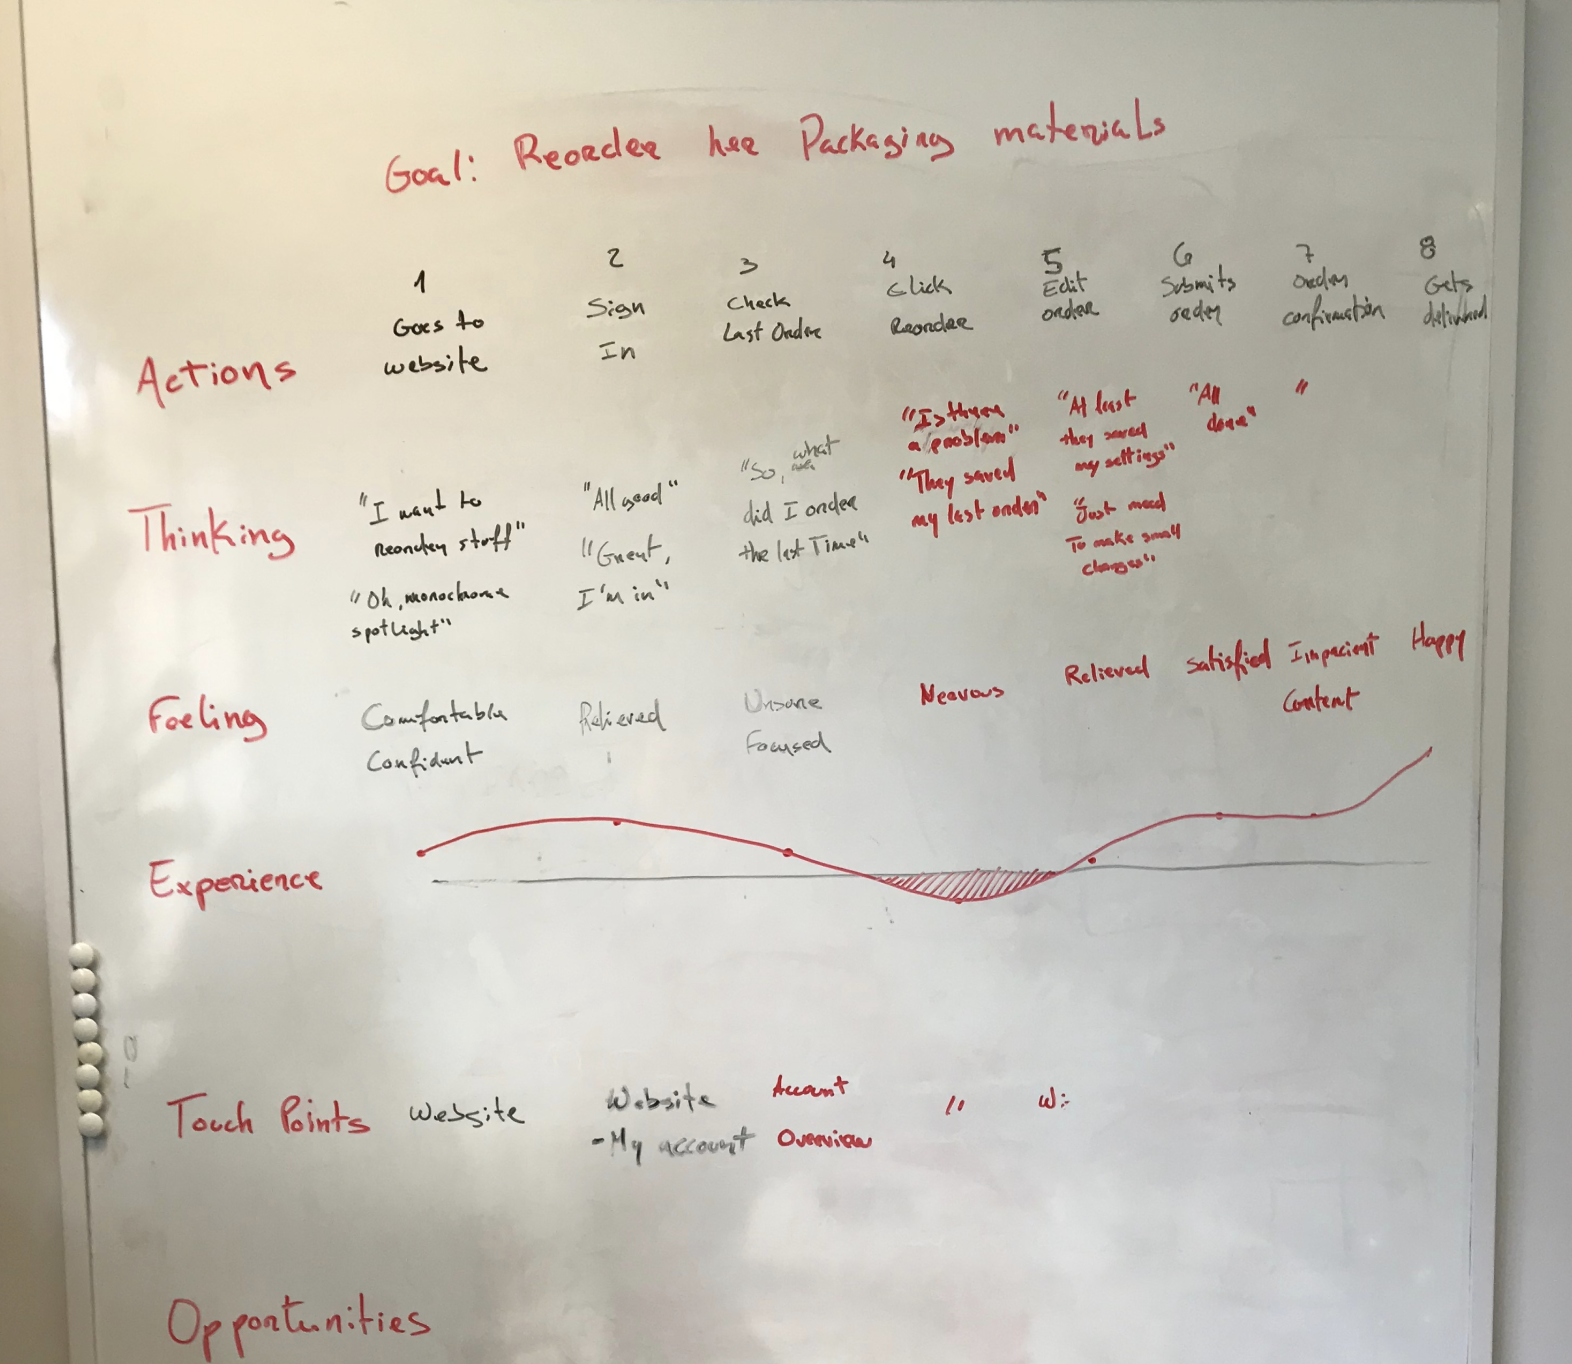 Goal: Reorder her Packaging materials
1
2
3
4
5
6
7
8
Actions
Goes to
website
Sign
In
Check
Last Order
Click
Reorder
Edit
order
Submits
order
order
confirmation
Gets
delivered
Thinking
"I want to
reorder stuff"
"Oh, monochrome
spotlight"
"All good"
"Great,
I'm in"
"So, what
did I order
the last Time"
"Is there
a problem"
"They saved
my last order"
"At least
they saved
my settings"
"Just need
To make small
changes"
"All
done"
"
Feeling
Comfortable
Confident
Relieved
Unsure
Focused
Nervous
Relieved
Satisfied
Impacient
Content
Happy
Experience
Touch Points
Website
Website
-My account
Account
Overview
"
Opportunities